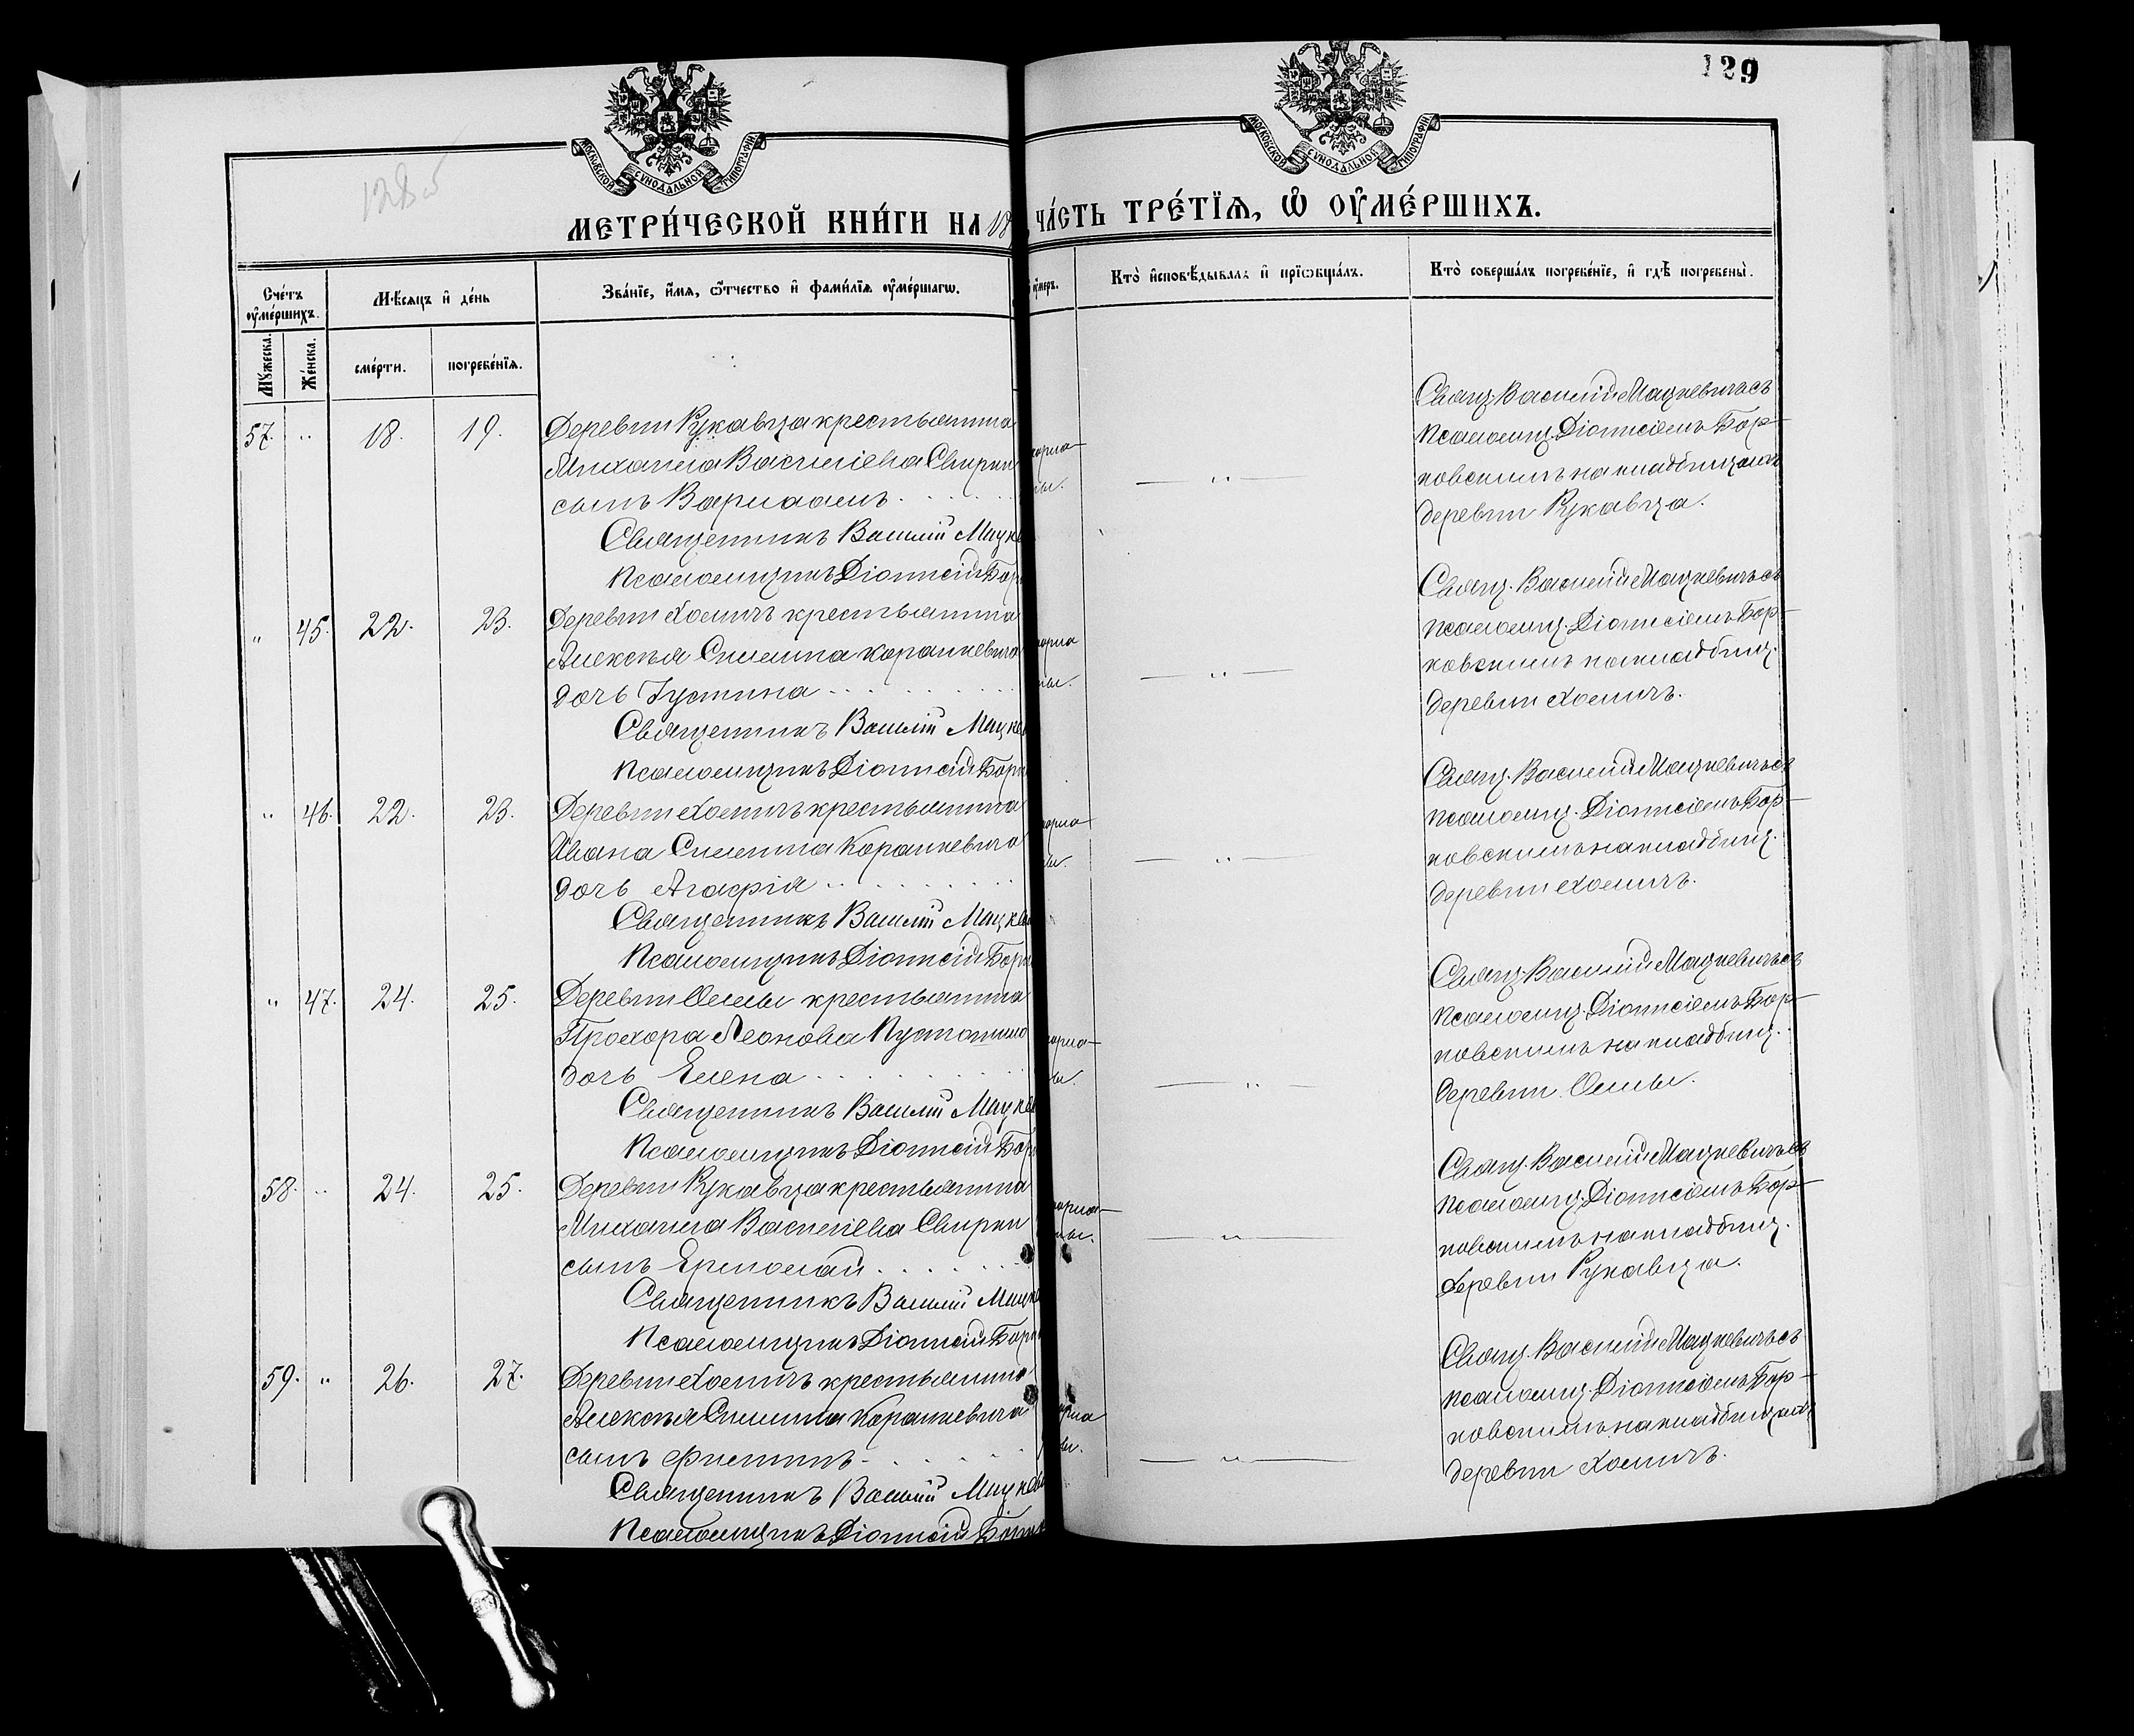 129
128 об
МОСКОВСКОЙ СѴНОДАЛЬНОЙ ТИПОГРАФІИ
МОСКОВСКОЙ СѴНОДАЛЬНОЙ ТИПОГРАФІИ
МЕТРИ́ЧЕСКОЙ КНИ́ГИ НА 18
ЧА́СТЬ ТРЕ́ТІѦ, Ѡ҆ ОУ҆МЕ́РШИХЪ.
Сче́тъ оу҆ме́ршихъ.
Мꙋ́жеска.
Же́нска.
Мѣ́сѧцъ и҆ де́нь
сме́рти.
погребе́нїѧ.
Зва́нїе, и҆́мѧ, ѻ҆́тчество и҆ фами́лїѧ оу҆ме́ршагѡ.
оу҆́меръ.
Кто̀ и҆сповѣ́дывалъ и҆ прїѡбща́лъ.
Кто̀ соверша́лъ погребе́нїе, и҆ гдѣ̀ погребены̀.
57. " 18. 19. Деревни Рукавца крестьянина
Михаила Василіева Свирки
сынъ Варлаамъ
Священникъ Василій Мацке
Псаломщикъ Діонисій Бор
Свящ. Василій Мацкевичъ съ
псаломщ. Діонисіемъ Бор-
ковскимъ на кладбищахъ
деревни Рукавца.
" 45. 22. 23. Деревни Хомичъ крестьянина
Алексѣя Симеонa Корапкевича
дочь Іустина
Священникъ Василій Мацке
Псаломщикъ Діонисій Бор
Свящ. Василій Мацкевичъ съ
псаломщ. Діонисіемъ Бор-
ковскимъ на кладбищ.
деревни Хомичъ.
" 46. 22. 23. Деревни Хомичъ крестьянина
Ивана Корапкевича
дочь Агафія
Священникъ Василій Мацке
Псаломщикъ Діонисій Бор
Свящ. Василій Мацкевичъ съ
псаломщ. Діонисіемъ Бор-
ковскимъ на кладбищ.
деревни Хомичъ.
" 47. 24. 25. Деревни крестьянина
Прохора Леонова
дочь Елена
Священникъ Василій Мацке
Псаломщикъ Діонисій Бор
Свящ. Василій Мацкевичъ съ
псаломщ. Діонисіемъ Бор-
ковскимъ на кладбищ.
деревни
58. " 24. 25. Деревни Рукавца крестьянина
Михаила Василіева Свирки
сынъ Ермолай
Священникъ Василій Мацке
Псаломщикъ Діонисій Бор
Свящ. Василій Мацкевичъ съ
псаломщ. Діонисіемъ Бор-
ковскимъ на кладбищ.
деревни Рукавца.
59. " 26. 27. Деревни Хомичъ крестьянина
Алексѣя Корапкевича
сынъ Филиппъ
Священникъ Василій Мацке
Псаломщикъ Діонисій Бор
Свящ. Василій Мацкевичъ съ
псаломщ. Діонисіемъ Бор-
ковскимъ на кладбищахъ
деревни Хомичъ.